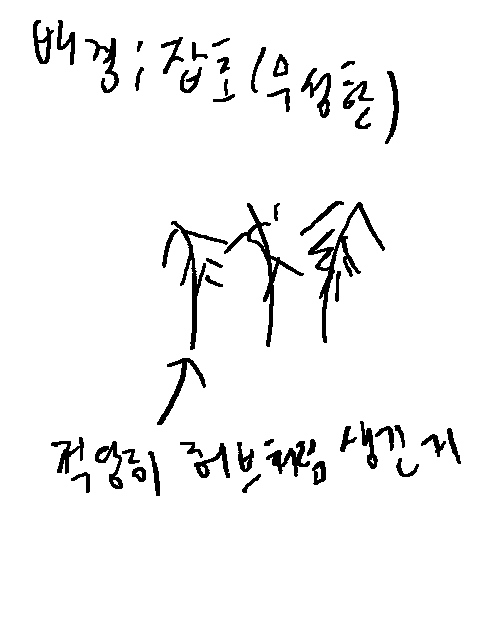 배경; 잡초(무성한)
적당히 허브처럼 생긴거